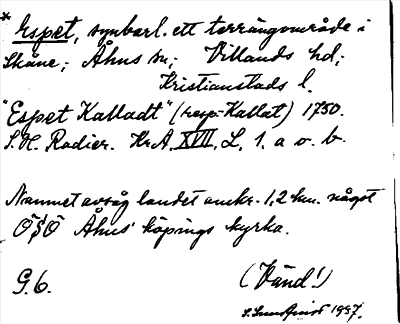 * Espet, synbarl. ett terrängområde i
Skåne; Åhus sn; Villands hd;
Kristianstads l.
"Espet Kalladt" (resp. Kallat) 1750.
S. H. Radier. Kr A XVII, L, 1. a o. b.
Namnet avsåg landet omkr. 1,2 km. något
ÖSÖ Åhus' köpings kyrka.
G. 6. (Vänd!)
1957.